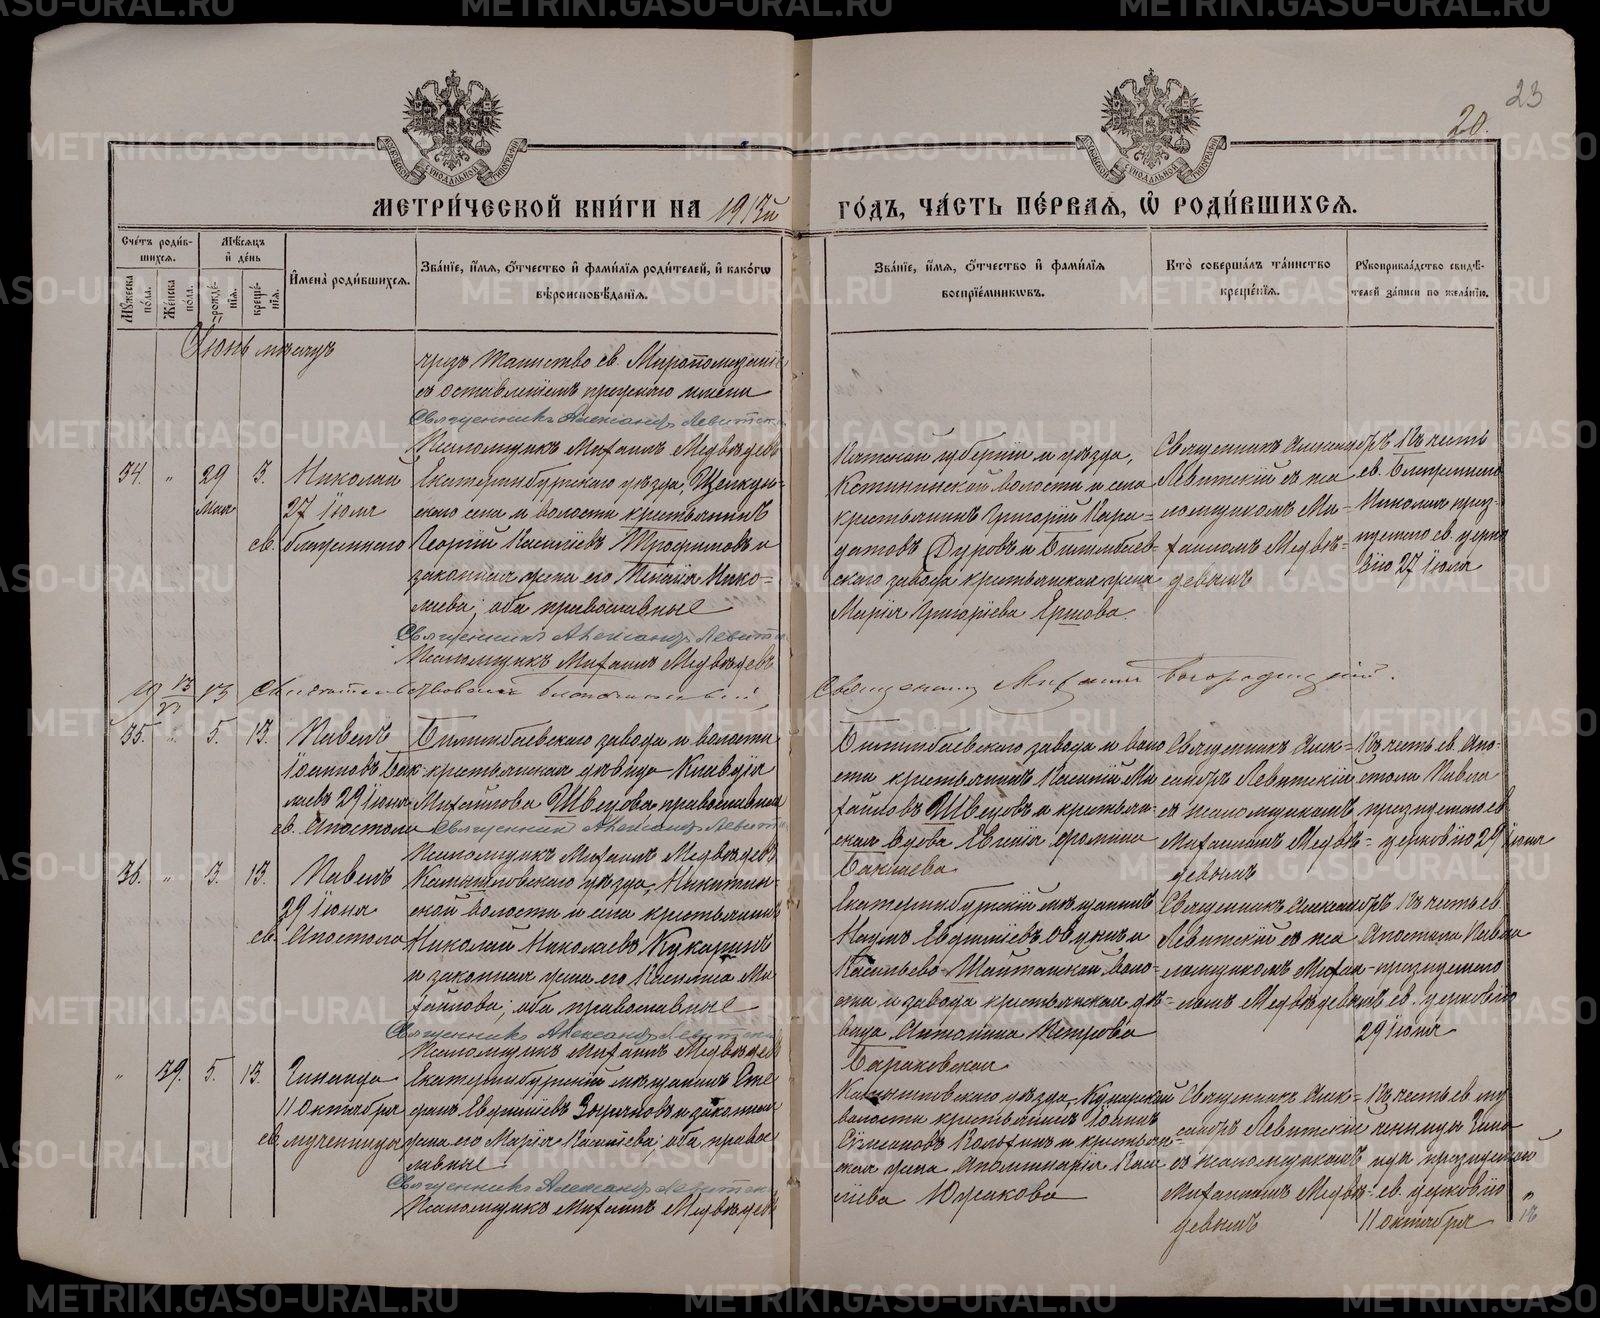 23
20.
МЕТРИ́ЧЕСКОЙ КНИ́ГИ НА 1913й ГО́ДЪ, ЧА́СТЬ ПЕ́РВАЯ, Ѡ҆ РОДИ́ВШИХСѦ.
Сче́тъ роди́в-
шихсѧ.
Мꙋ́жеска по́ла.
Же́нска по́ла.
Мѣ́сѧцъ
и҆ де́нь
рожде́-
нїѧ.
креще́-
нїѧ.
И҆мена̀ роди́вшихсѧ.
Зва́нїе, и҆́мѧ, ѻ҆́тчество и҆ фами́лїѧ роди́телей, и҆ како́гѡ
вѣроисповѣ́данїѧ.
Зва́нїе, и҆́мѧ, ѻ҆́тчество и҆ фами́лїѧ
воспрїе́мникѡвъ.
Кто̀ соверша́лъ та́инство
креще́нїѧ.
Рꙋкоприкла́дство свидѣ́-
телей за́писи по жела́нїю.
Іюнь мѣсяцъ
чрезъ Таинство св. Миропомазанія
съ оставленіемъ прежняго имени
Священникъ Александръ Левитскі
Псаломщикъ Михаилъ Медвѣдевъ
34. " 29 3.
мая
Николай
27 Іюля
св. блаженнаго
Екатеринбургскаго уѣзда, Щелкун-
скаго села и волости крестьянинъ
Георгій Васильевъ Трофимовъ и
законная жена его Нико-
лаева; оба православные
Священникъ Александръ Левитск
Псаломщикъ Михаилъ Медвѣдевъ
Вятской губерніи и уѣзда,
волости и села
крестьянинъ Григорій
Дуровъ и Билимбаев-
скаго завода крестьянская жена
Марія Григоріева Ершова.
Священникъ Александръ
Левитскій съ пса
ломщикомъ Ми-
хаиломъ Медвѣ-
девымъ
Въ честь
св. Блаженнаго
Николая праз-
днуемаго св. церко
вію 27 Іюля
13
Свидѣтельствовалъ благочинный Священникъ Михаилъ Богородицкій.
35. " 5. 13.
Павелъ
Іоанновъ Бак-
лаевъ 29 Іюня
св. Апостола
Билимбаевскаго завода и волости
крестьянская дѣвица Клавдія
Михайлова Швецова православная
Священникъ Александръ Левитск
Псаломщикъ Михаилъ Медвѣдевъ
Билимбаевскаго завода и воло
сти крестьянинъ Василій Ми
хайловъ Швецовъ и крестьян-
ская вдова Фомина
Баклаева
Священникъ Алек-
сандръ Левитскій
съ псаломщикомъ
Михаиломъ Медвѣ-
девымъ
Въ честь св. Апо-
стола Павла
празднуемаго св
церковію 29 Іюня
36. " 3. 13.
Павелъ
29 Іюня
св. Апостола
Камышловскаго уѣзда, Никитин-
ской волости и села крестьянинъ
Николай Николаевъ Кукаринъ
и законная жена его Ми
хайлова; оба православные
Священникъ Александръ Левитскі
Псаломщикъ Михаилъ Медвѣдевъ
Екатеринбургскій мѣщанинъ
Наумъ и
Васильево-Шайтанской воло-
сти и завода крестьянская дѣ-
вица Антонина Петрова
Бараковская
Священникъ Александръ
Левитскій съ пса
ломщикомъ Михаи-
ломъ Медвѣдевымъ
Въ честь св
Апостола Павла
празднуемаго
св. церковію
29 Іюня
" 39. 5. 13.
Зинаида
11 Октября
св. мученицы
Екатеринбургскій мѣщанинъ Сте
фанъ Зыряновъ и законная
жена его Марія Васильева; оба право-
славные
Священникъ Александръ Левитскі
Псаломщикъ Михаилъ Медвѣдевъ
Камышловскаго уѣзда, Кунарской
волости крестьянинъ Іоаннъ
и крестьян-
ская жена Апполинарія Васи
ліева Юшкова
Священникъ Алек-
сандръ Левитскій
съ псаломщикомъ
Михаиломъ Медвѣ-
девымъ
Въ честь св му
ченицы Зина
иды празднуемой
св. церковію
11 октября
METRIKI.GASO-URAL.RU